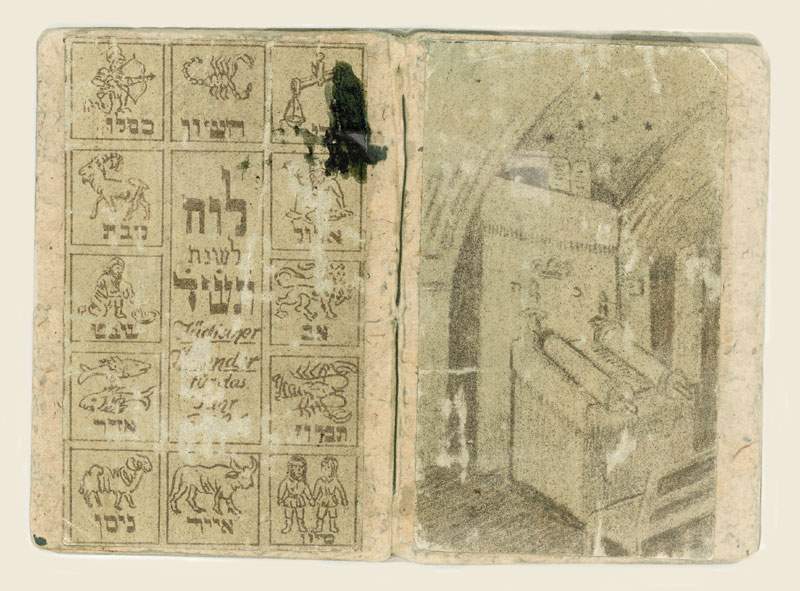 חשון
כסלו
אלול
טבת
אב
שבט
תמוז
אדר
סיון
אייר
ניסן
לוח
לשנת
Jüdischer
Kalender
für das
Jahr